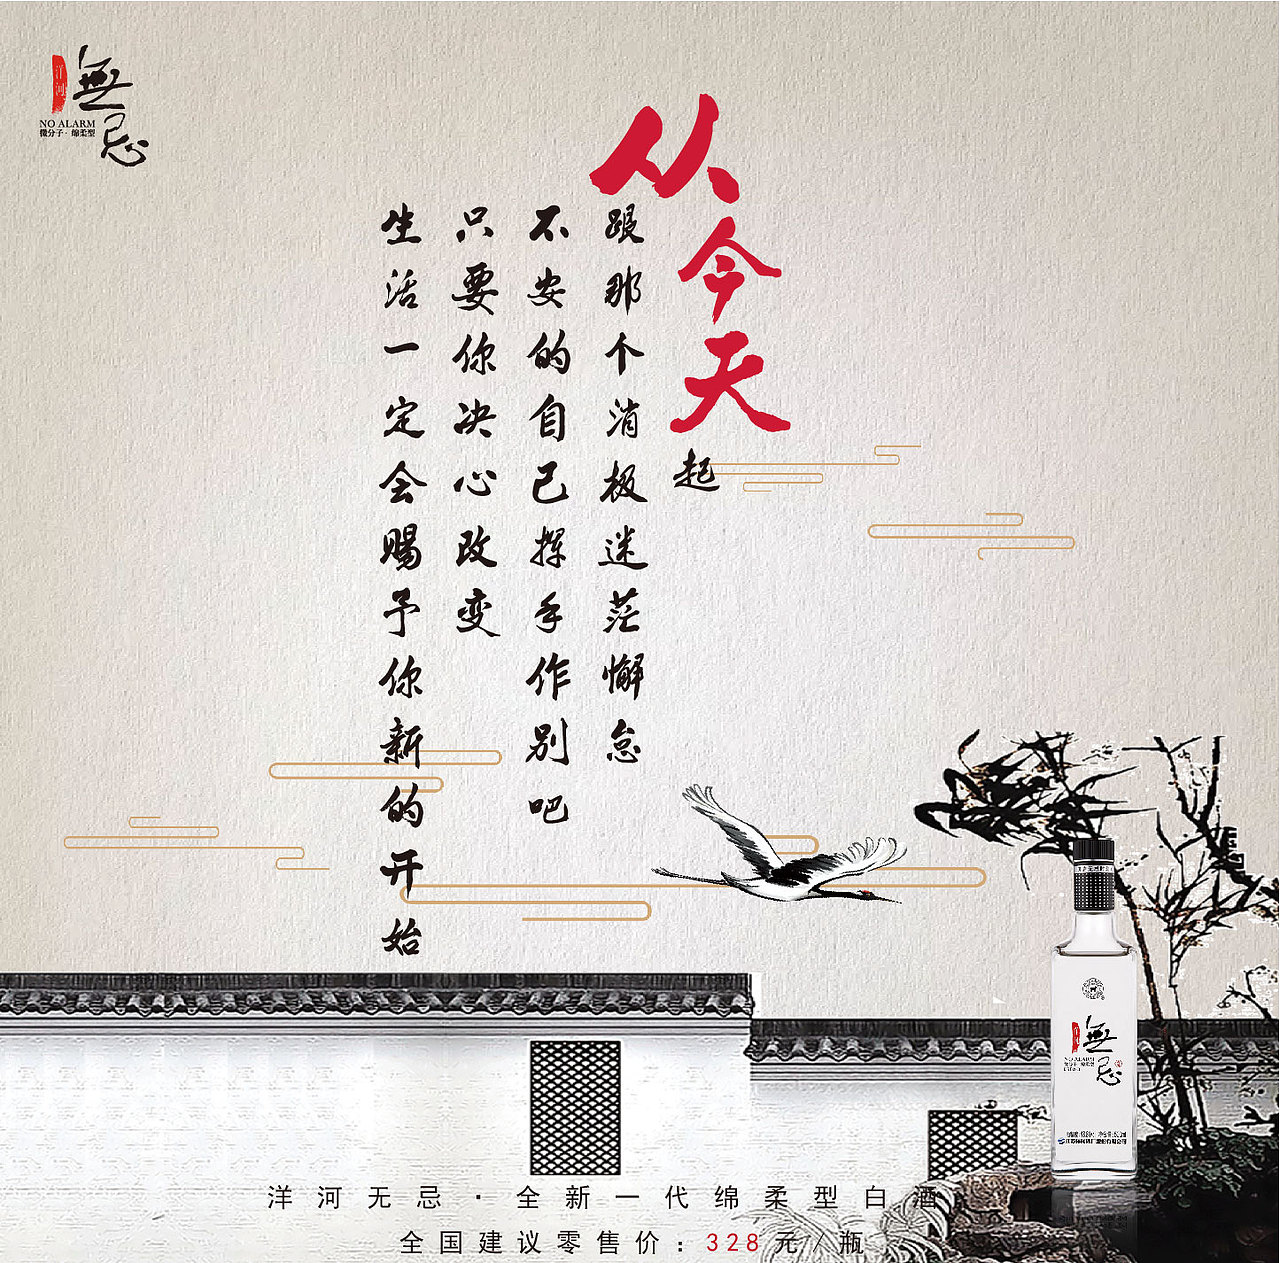 洋河
無忌
NO ALARM
微分子·绵柔型
从今天起
跟那个消极迷茫懈怠
不安的自己挥手作别吧
只要你决心改变
生活一定会赐予你新的开始
洋河
無忌
NO ALARM
微分子·绵柔型
洋河无忌·全新一代绵柔型白酒
全国建议零售价：328元/瓶